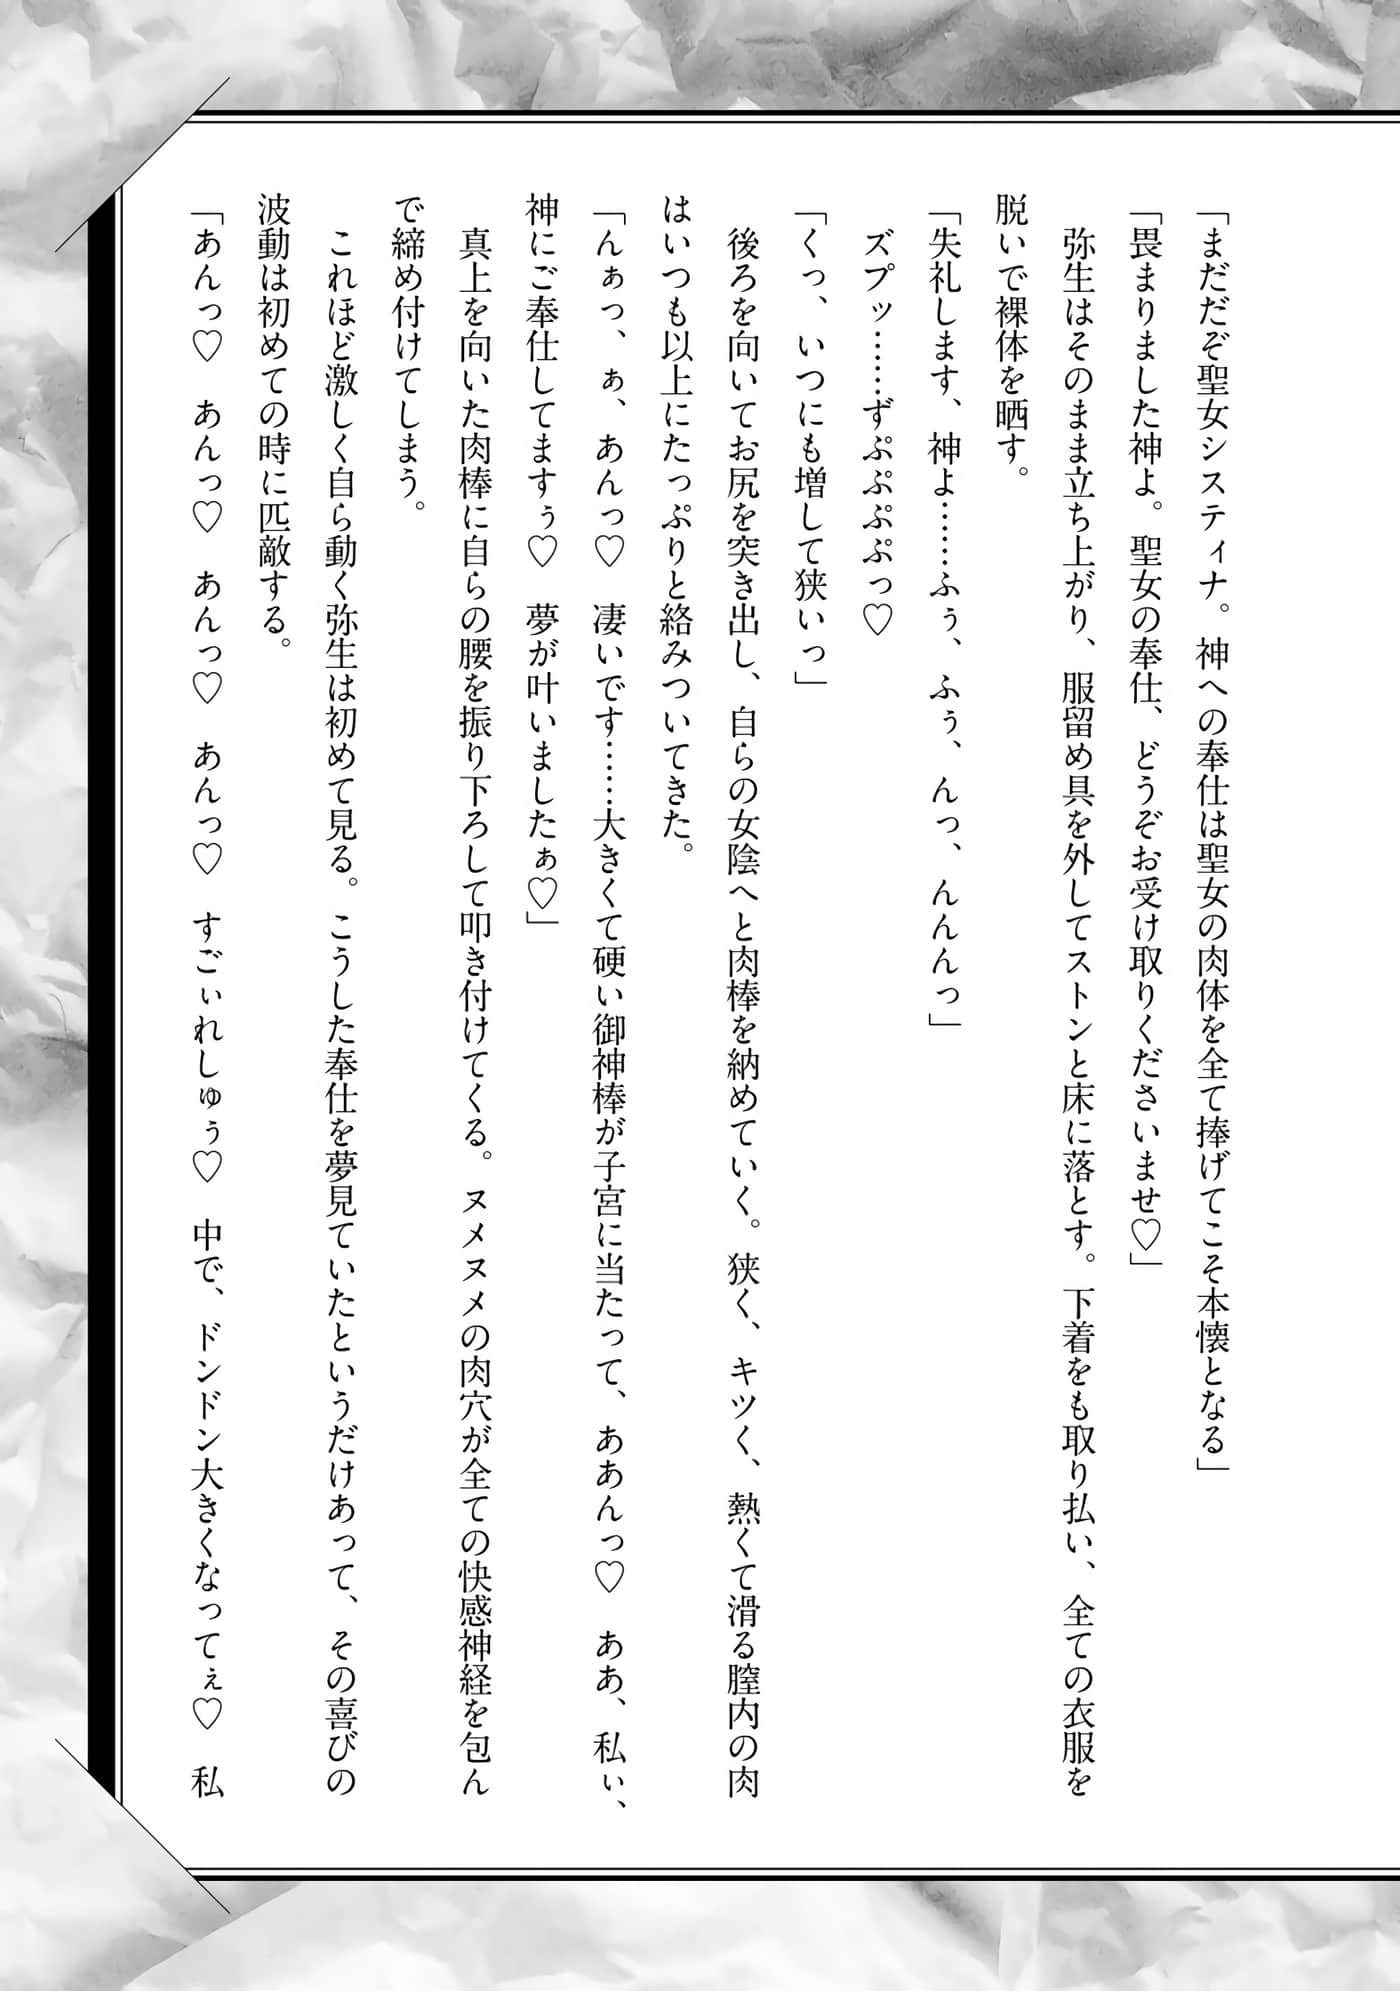 「まだだぞ聖女システィナ。神への奉仕は聖女の肉体を全て捧げてこそ本懐となる」
「畏まりました神よ。聖女の奉仕、どうぞお受け取りくださいませ♡」
　弥生はそのまま立ち上がり、服留め具を外してストンと床に落とす。下着をも取り払い、全ての衣服を
脱いで裸体を晒す。
「失礼します、神よ……ふぅ、ふぅ、んっ、んんんっ」
　ズプッ……ずぷぷぷぷっ♡
「くっ、いつにも増して狭いっ」
　後ろを向いてお尻を突き出し、自らの女陰へと肉棒を納めていく。狭く、キツく、熱くて滑る膣内の肉
はいつも以上にたっぷりと絡みついてきた。
「んぁっ、ぁ、あんっ♡　凄いです……大きくて硬い御神棒が子宮に当たって、ああんっ♡　ああ、私ぃ、
神にご奉仕してますぅ♡　夢が叶いましたぁ♡」
　真上を向いた肉棒に自らの腰を振り下ろして叩き付けてくる。ヌメヌメの肉穴が全ての快感神経を包ん
で締め付けてしまう。
　これほど激しく自ら動く弥生は初めて見る。こうした奉仕を夢見ていたというだけあって、その喜びの
波動は初めての時に匹敵する。
「あんっ♡　あんっ♡　あんっ♡　あんっ♡　すごぃれしゅぅ♡　中で、ドンドン大きくなってぇ♡　私